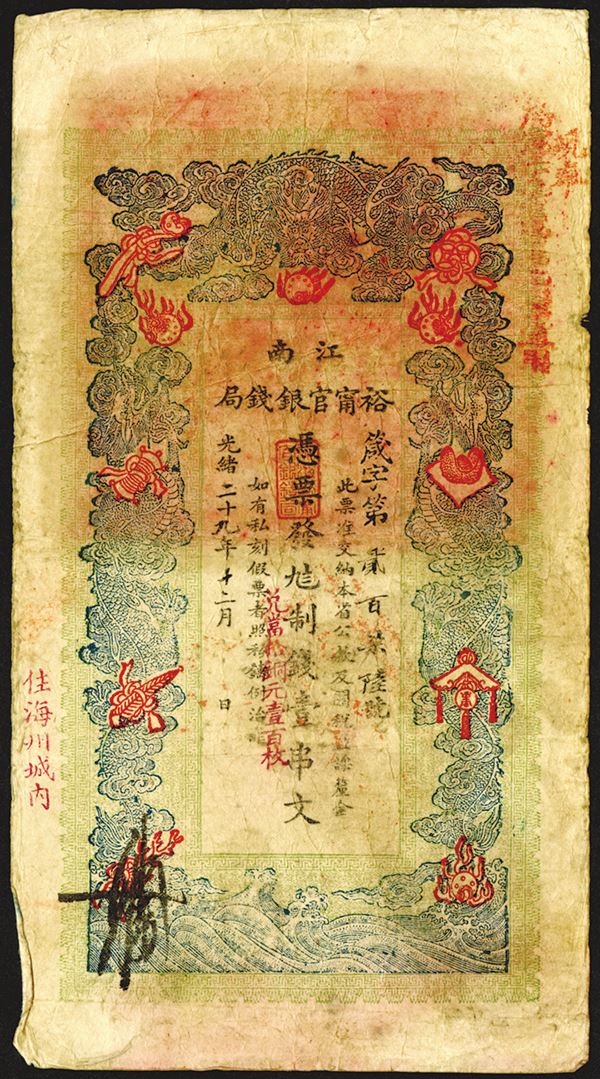 江南
裕甯官銀錢局
箴字第貳百柒陸號
此票准交納本省公款及關稅鹽課釐金
憑票發足制錢壹串文
兌當拾銅元壹百枚
如有私刻假票者照私鑄例治罪
光緒二十九年十二月 日
住海州城內